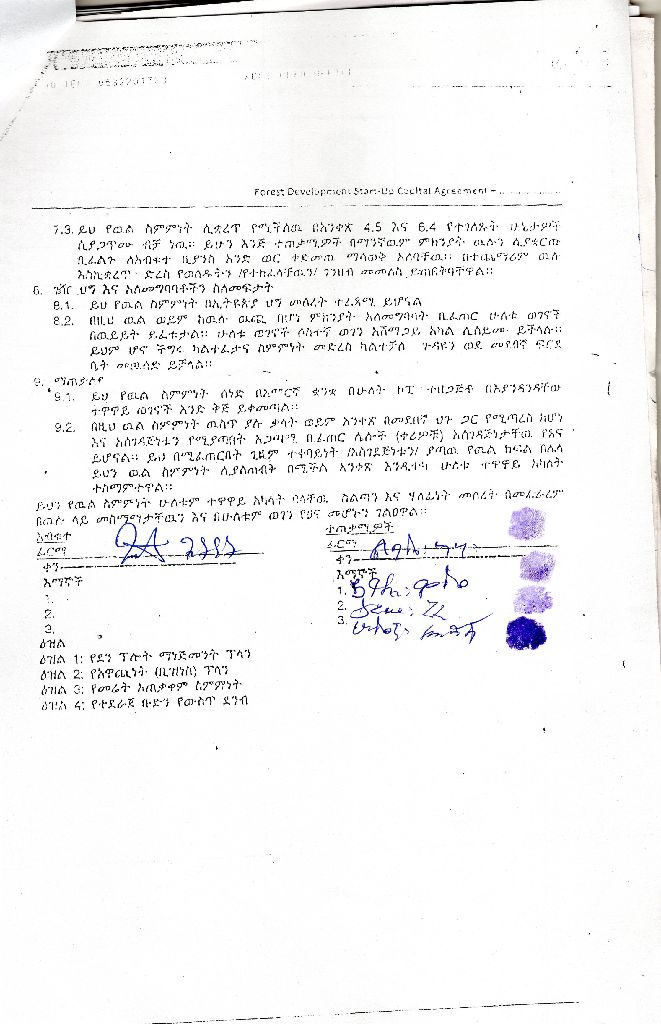 Forest Development Start-Up Capital Agreement –
7.3. ይህ የዉል ስምምነት ሊቋረጥ የሚችለዉ በአንቀጽ 4.5 እና 6.4 የተገለጹት ሁኔታዎች
ሲያጋጥሙ ብቻ ነዉ። ይሁን እንጅ ተጠቃሚዎች በማንኛዉም ምክንያት ዉሉን ሲያቋርጡ
ቢፈልጉ ለአብቁተ ቢያንስ አንድ ወር ቀደመዉ ማሳወቅ አለባቸዉ። በተጨማሪም ዉሉ
እስኪቋረጥ ድረስ የወሰዱትን /የተከፈላቸዉን/ ገንዘብ መመለስ ይጠበቅባቸዋል።
8. ገዥ ህግ እና አለመግባባቶችን ስለመፍታት
8.1. ይህ የዉል ስምምነት በኢትዮጵያ ህግ መሰረት ተፈጻሚ ይሆናል
8.2. በዚህ ዉል ወይም ከዉሉ ዉጪ በሆነ ምክንያት አለመግባባት ቢፈጠር ሁለቱ ወገኖች
በዉይይት ይፈቱታል። ሁለቱ ወገኖች ሶስተኛ ወገን አሸማጋይ አካል ሊሰይሙ ይችላሉ።
ይህም ሆኖ ችግሩ ካልተፈታና ስምምነት መድረስ ካልተቻለ ጉዳዩን ወደ መደበኛ ፍርድ
ቤት መዉሰድ ይቻላል።
9. ማጠቃለያ
9.1. ይህ የዉል ስምምነት ሰነድ በአማርኛ ቋንቋ በሁለት ኮፒ ተዘጋጅቶ በእያንዳንዳቸው
ተዋዋይ ወገኖች እንድ ቅጅ ይቀመጣል።
9.2. በዚህ ዉል ስምምነት ዉስጥ ያሉ ቃላት ወይም አንቀጽ በመደበኛ ህጉ ጋር የሚጣረስ ከሆነ
እና አስገዳጅነቱን የሚያጣበት አጋጣሚ በፈጠር ሌሎች (ቀሪዎቹ) አስገዳጅነታቸዉ የፀና
ይሆናል። ይህ በሚፈጠርበት ጊዜም ተቀባይነት /አስገደጅነቱን/ ያጣዉ የዉል ክፍል በሌላ
ይህን ዉል ስምምነት ሊያስጠብቅ በሚችል አንቀጽ እንዲተካ ሁለቱ ተዋዋይ አካላት
ተስማምተዋል።
ይህን የዉል ስምምነት ሁለቱም ተዋዋይ አካላት ባላቸዉ ስልጣን እና ሃላፊነት መሰረት በመፈራረም
በዉሉ ላይ መስማማታቸዉን እና በሁለቱም ወገን የፀና መሆኑን ገልፀዋል።
አብቁተ ተጠቃሚዎች
ፊርማ ፊርማ
ቀን ቀን
እማኞች እማኞች
1. 1.
2. 2.
3. 3.
ዕዝል
ዕዝል 1: የደን ፕሎት ማኔጅመንት ፕላን
ዕዝል 2: የአዋጪነት (ቢዝነስ) ፕላን
ዕዝል 3: የመሬት አጠቃቀም ስምምነት
ዕዝል 4: የተደራጀ ቡድን የውስጥ ደንብ